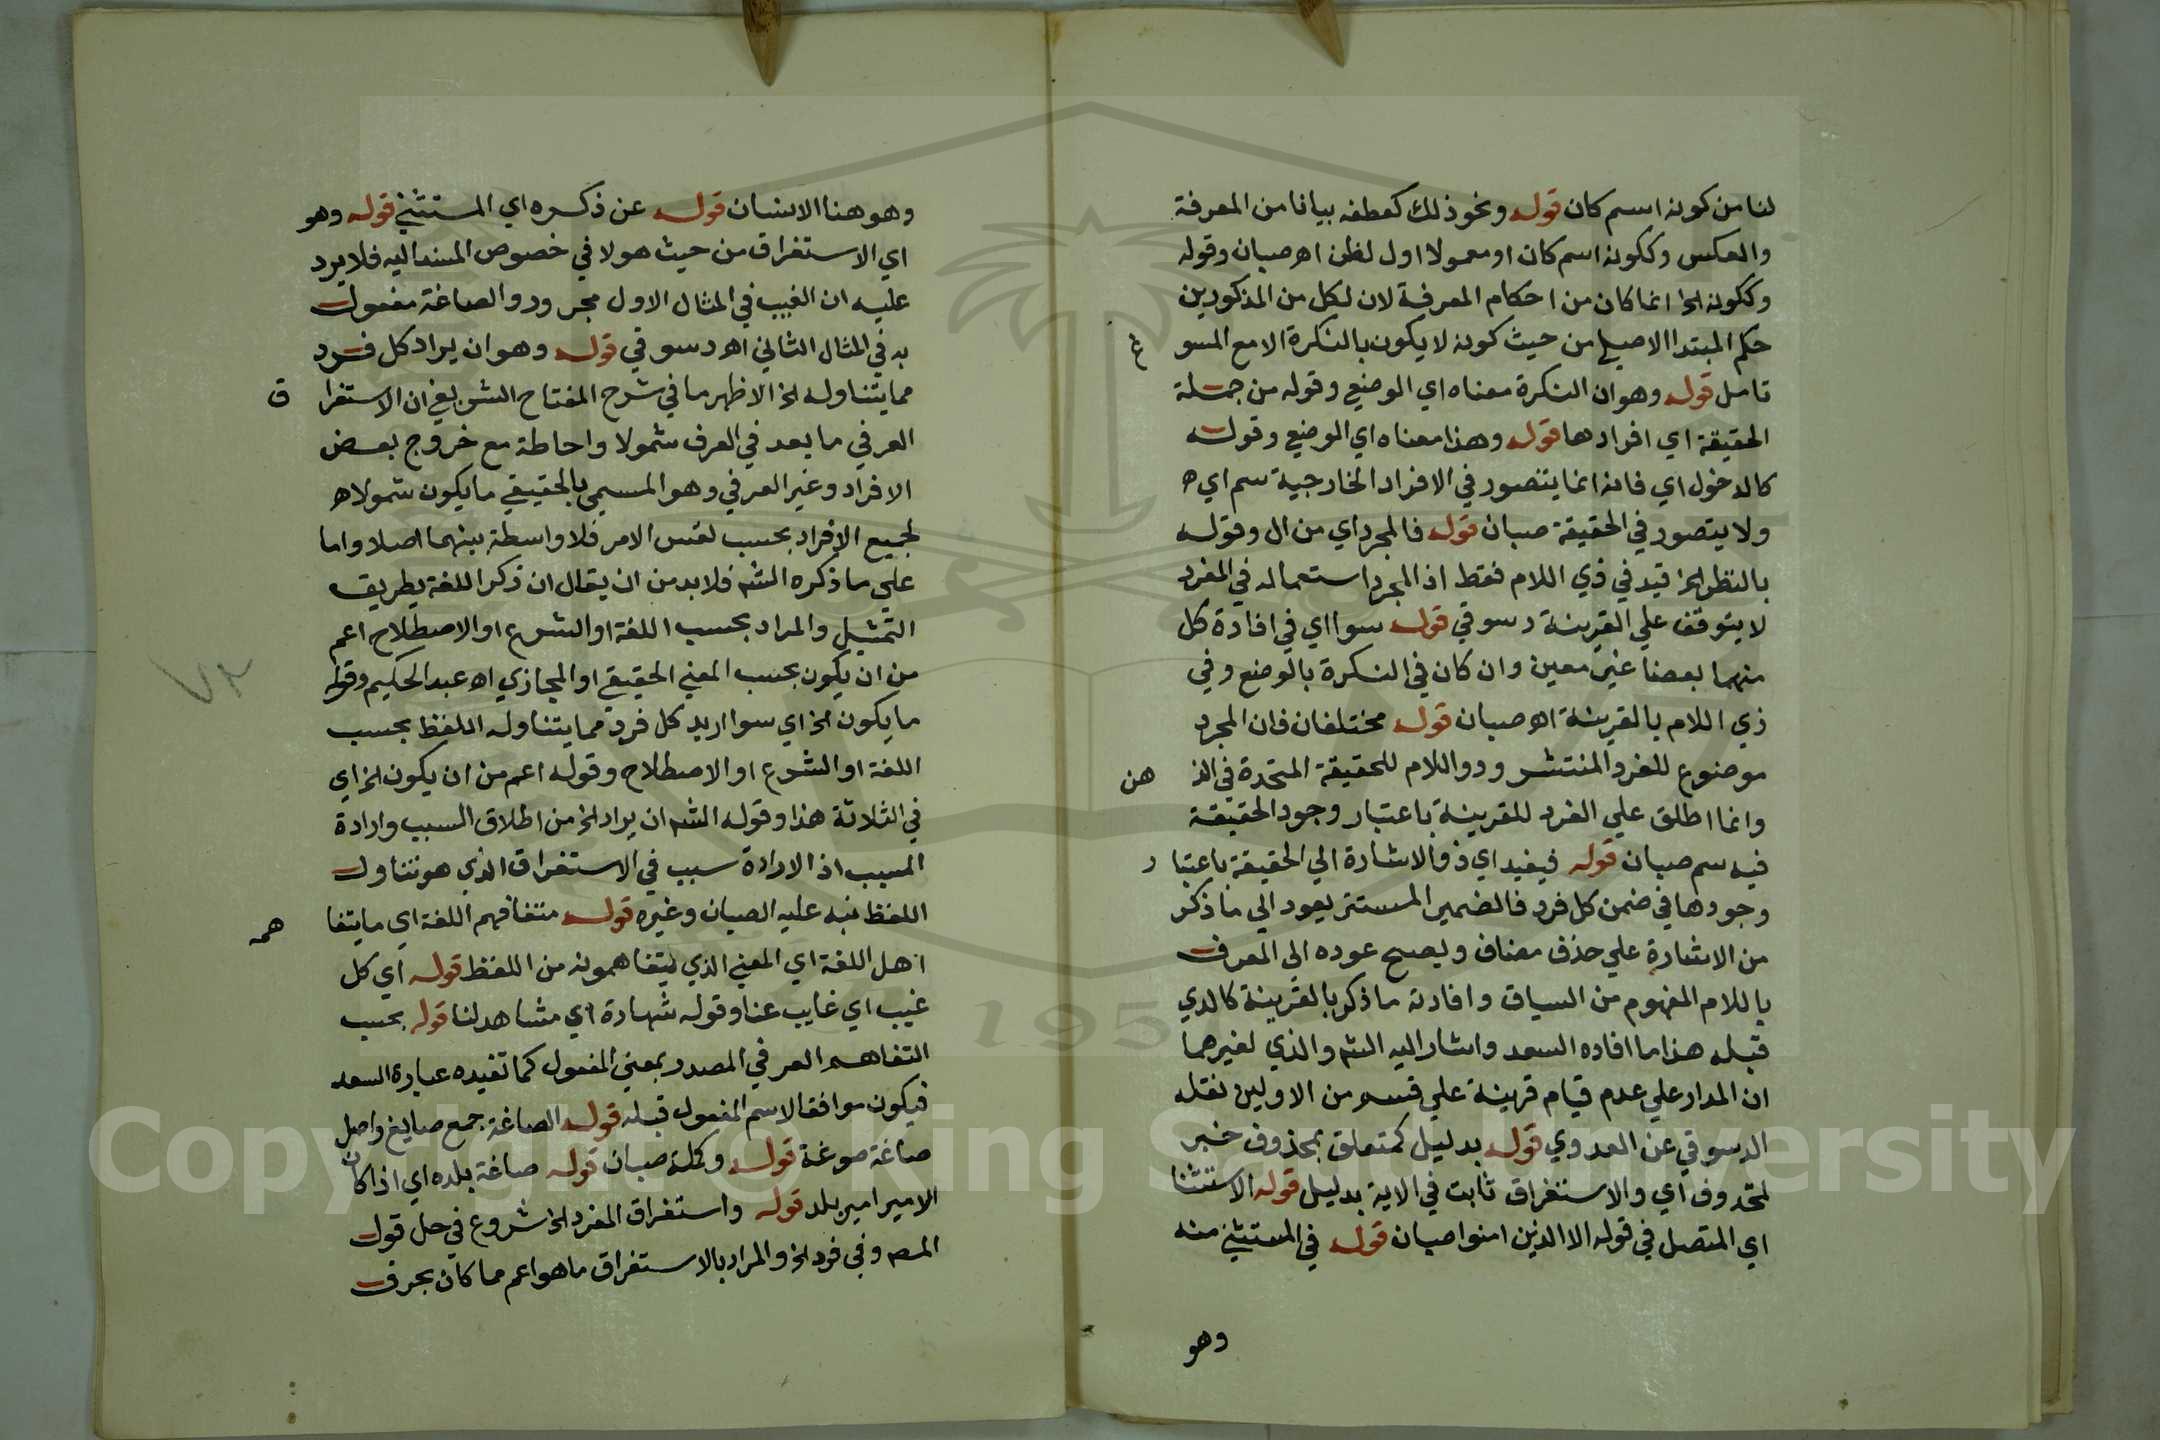 لنا من كونه اسم كان قوله ونحو ذلك كعطفه بيانا من المعرفة
والعكس وككونه اسم كان او معمولا اول لظن اهـ صبان وقوله
وككونه الخ انما كان من احكام المعرفة لان لكل من المذكورين
حكم المبتدا الاصلي من حيث كونه لا يكون بالنكرة الا مع المسو غ
تامل قوله وهو ان النكرة معناه اي الوضعي وقوله من جملة
الحقيقة اي افرادها قوله وهذا معناه اي الوضعي وقوله
كالدخول اي فانه انما يتصور في الافراد الخارجية سم اي ه
ولا يتصور في الحقيقة صبان قوله فالمجرد اي من ال وقوله
بالنظر الخ قيد في ذي اللام فقط اذ المجرد استعماله في المفرد
لا يتوقف علي القرينة دسوقي قوله سوا اي في افادة كل
منهما بعضا غير معين وان كان في النكرة بالوضع وفي
ذي اللام بالقرينة اهـ صبان قوله مختلفان فان المجرد
موضوع للفرد المنتشر وذو اللام للحقيقة المتحدة في الذ هن
وانما اطلق علي الفرد للقرينة باعتبار وجود الحقيقة
فيه سم صبان قوله فيفيد اي ذو الاشارة الي الحقيقة باعتبا ر
وجودها في ضمن كل فرد فالضمير المستتر يعود الي ما ذكر
من الاشارة علي حذف مضاف ويصح عوده الي المعرف
باللام المفهوم من السياق وافادته ما ذكر بالقرينة كالذي
قبله هذا ما افاده السعد واشار اليه الشم والذي لغيرهما
ان المدار علي عدم قيام قرينة علي قسم من الاولين نقله
الدسوقي عن العدوي قوله بدليل كمتعلق بحذوف خبر
لمحذوف اي والاستغراق ثابت في الاية بدليل قوله الاستثنا
اي المتصل في قوله الا الذين امنوا صبان قوله في المستثني منه
وهو
وهو هنا الانسان قوله عن ذكره اي المستثني قوله وهو
اي الاستغراق من حيث هو لا في خصوص المسند اليه فلا يرد
عليه ان الغيب في المثال الاول مجرور والصاغة مفعول
به في المثال الثاني اهـ دسوقي قوله وهو ان يراد كل فرد
مما يتناوله الخ الاظهر ما في شرح المفتاح الشريفي ان الاستغرا ق
العرفي ما يعد في العرف شمولا واحاطة مع خروج بعض
الافراد وغير العرفي وهو المسمي بالحقيقي ما يكون شمولا ه
لجميع الافراد بحسب نفس الامر فلا واسطة بينهما اصلا واما
علي ما ذكره الشم فلا بد من ان يقال ان ذكر اللغة بطريق
التمثيل والمراد بحسب اللغة او الشرع او الاصطلاح اعم
من ان يكون بحسب المعني الحقيقي او المجازي اهـ عبد الحكيم وقوله
ما يكون الخ اي سوا اريد كل فرد مما يتناوله اللفظ بحسب
اللغة او الشرع او الاصطلاح وقوله اعم من ان يكون الخ اي
في الثلاثة هذا وقوله الشم ان يراد الخ من اطلاق السبب وارادة
المسبب اذ الارادة سبب في الاستغراق الذي هو تناول
اللفظ نبه عليه الصبان وغيره قوله متفاهم اللغة اي ما يتفا همه
اهل اللغة اي المعني الذي يتفاهمونه من اللفظ قوله اي كل
غيب اي غايب عنا وقوله شهادة اي مشاهد لنا قوله بحسب
التفاهم العرفي المصدر بمعني المفعول كما تفيده عبارة السعد
فيكون موافقا لاسم المفعول قبله قوله الصاغة جمع صايغ واصل
صاغة صوغة قوله وككلة صبان قوله صاغة بلده اي اذا كان
الامير امير بلد قوله واستغراق المفرد الخ شروع في حل قول
المصـ وفي فرد الخ والمراد بالاستغراق ما هو اعم مما كان بحرف
٧٢
Copyright © King Saud University
1957